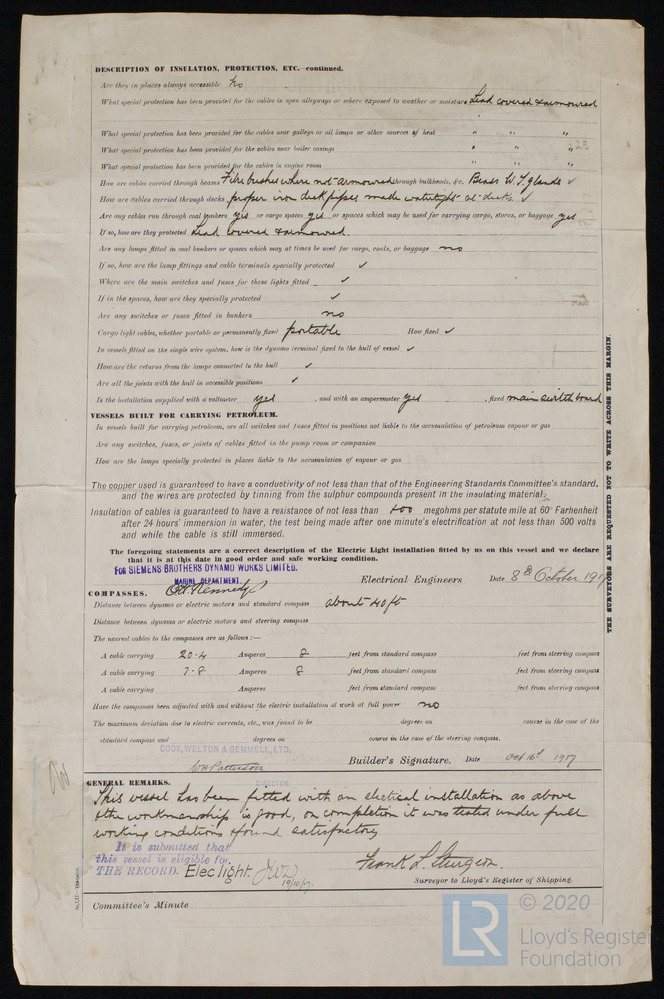 DESCRIPTION OF INSULATION, PROTECTION, ETC.—continued.
Are they in places always accessible No
What special protection has been provided for the cables in open alleyways or where exposed to weather or moisture Lead covered & armoured
What special protection has been provided for the cables near galleys or oil lamps or other sources of heat " " "
What special protection has been provided for the cables near boiler casings " " "
What special protection has been provided for the cables in engine room " " "
How are cables carried through beams Fibre bushes where not armoured through bulkheads, &c. Brass W.T. glands ✓
How are cables carried through decks proper iron deck pipes made watertight at decks ✓
Are any cables run through coal bunkers yes or cargo spaces yes or spaces which may be used for carrying cargo, stores, or baggage yes
If so, how are they protected Lead covered & armoured.
Are any lamps fitted in coal bunkers or spaces which may at times be used for cargo, coals, or baggage no
If so, how are the lamp fittings and cable terminals specially protected ✓
Where are the main switches and fuses for these lights fitted ✓
If in the spaces, how are they specially protected ✓
Are any switches or fuses fitted in bunkers no
Cargo light cables, whether portable or permanently fixed portable How fixed ✓
In vessels fitted on the single wire system, how is the dynamo terminal fixed to the hull of vessel ✓
How are the returns from the lamps connected to the hull ✓
Are all the joints with the hull in accessible positions ✓
Is the installation supplied with a voltmeter yes , and with an amperemeter yes , fixed main switch board
VESSELS BUILT FOR CARRYING PETROLEUM.
In vessels built for carrying petroleum, are all switches and fuses fitted in positions not liable to the accumulation of petroleum vapour or gas
Are any switches, fuses, or joints of cables fitted in the pump room or companion
How are the lamps specially protected in places liable to the accumulation of vapour or gas
The copper used is guaranteed to have a conductivity of not less than that of the Engineering Standards Committee's standard,
and the wires are protected by tinning from the sulphur compounds present in the insulating material.
Insulation of cables is guaranteed to have a resistance of not less than 600 megohms per statute mile at 60° Farhenheit
after 24 hours' immersion in water, the test being made after one minute's electrification at not less than 500 volts
and while the cable is still immersed.
The foregoing statements are a correct description of the Electric Light installation fitted by us on this vessel and we declare
that it is at this date in good order and safe working condition.
FOR SIEMENS BROTHERS DYNAMO WORKS LIMITED.
MARINE DEPARTMENT.
Kennedy Electrical Engineers Date, 8th October 1917
COMPASSES.
Distance between dynamo or electric motors and standard compass about 40 ft
Distance between dynamo or electric motors and steering compass
The nearest cables to the compasses are as follows:—
A cable carrying 20.4 Amperes 8 feet from standard compass feet from steering compass
A cable carrying 7.8 Amperes 8 feet from standard compass feet from steering compass
A cable carrying Amperes feet from standard compass feet from steering compass
Have the compasses been adjusted with and without the electric installation at work at full power no
The maximum deviation due to electric currents, etc., was found to be degrees on course in the case of the
standard compass and degrees on course in the case of the steering compass.
COOK, WELTON & GEMMELL, LTD.
W H Patterson Builder's Signature. Date Oct 16th 1917
DIRECTOR.
GENERAL REMARKS.
This vessel has been fitted with an electical installation as above
the workmanship is good, on completion it was tested under full
working conditions & found satisfactory
It is submitted that
this vessel is eligible for
THE RECORD. Elec light. JWD 19/10/17.
Frank L. Sturgeon.
Surveyor to Lloyd's Register of Shipping.
Committee's Minute
THE SURVEYORS ARE REQUESTED NOT TO WRITE ACROSS THIS MARGIN.
LR © 2020
Lloyd's Register
Foundation